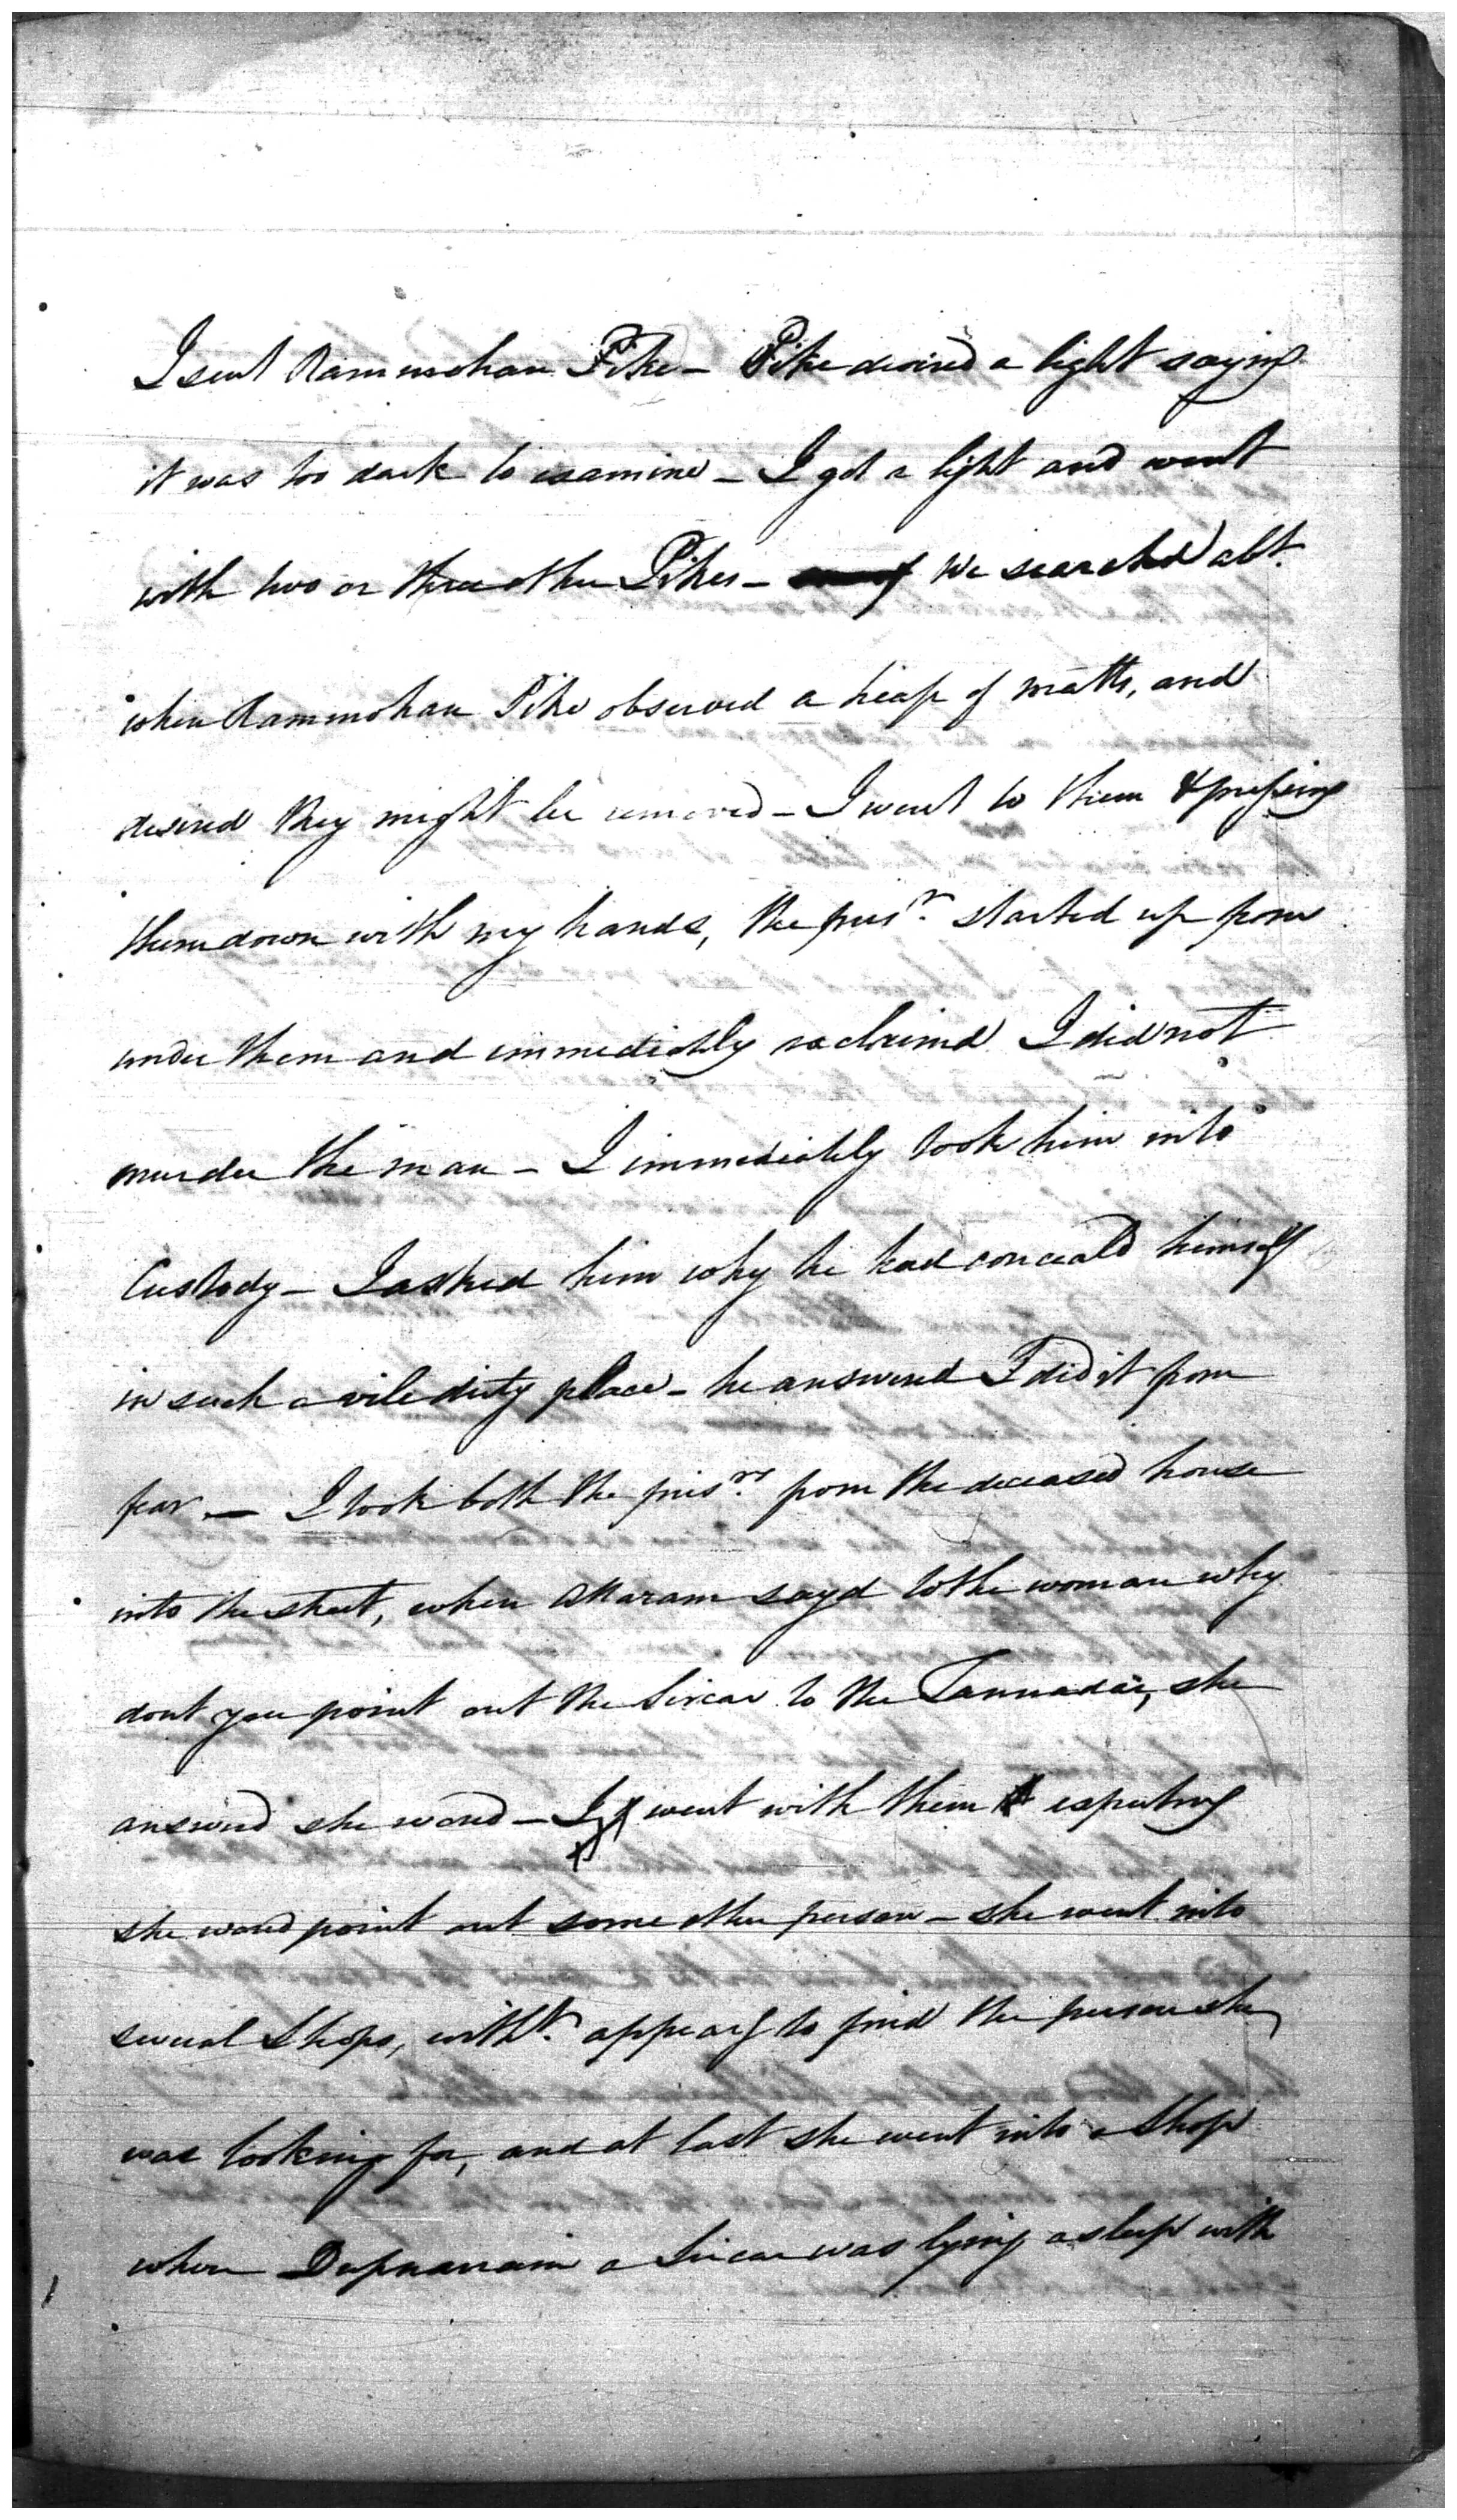 I sent Rammohan Pike – Pike desired a light saying
it was too dark to examine – I got a light and went
with two or three other Pikes – We searched abt.
when Rammohan Pike observed a heap of matts, and
desired they might be removed – I went to them & pressing
them down with my hands, the prisr. started up from
under them and immediately exclaimd I did not
murder the man – I immediately took him into
Custody – I asked him why he had conceald himself
in such a vile dirty place – he answerd I did it from
fear – I took both the prisrs. from the deceased house
into the street, when Attaram sayd to the woman why
dont you point out the Sircar to the Tannadar, she
answerd she woud – I went with them expecting
she woud point out some other person – she went into
several Shops, witht. appearg to find the person she
was looking for, and at last she went into a Shop
where a Sircar was lying asleep with